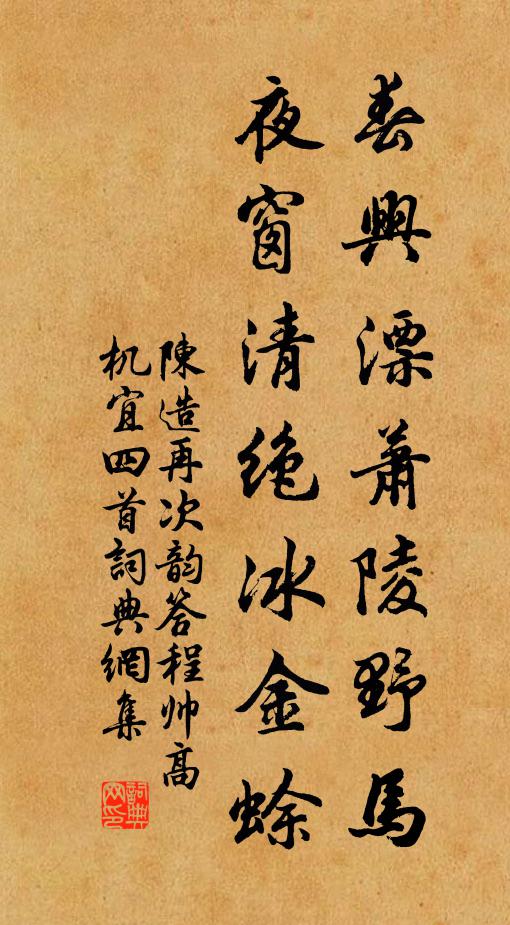 春興漂蕭陵野馬
夜窗清絶冰金蜍
陳造再次韵答程帅高
机宜四首詞典網集